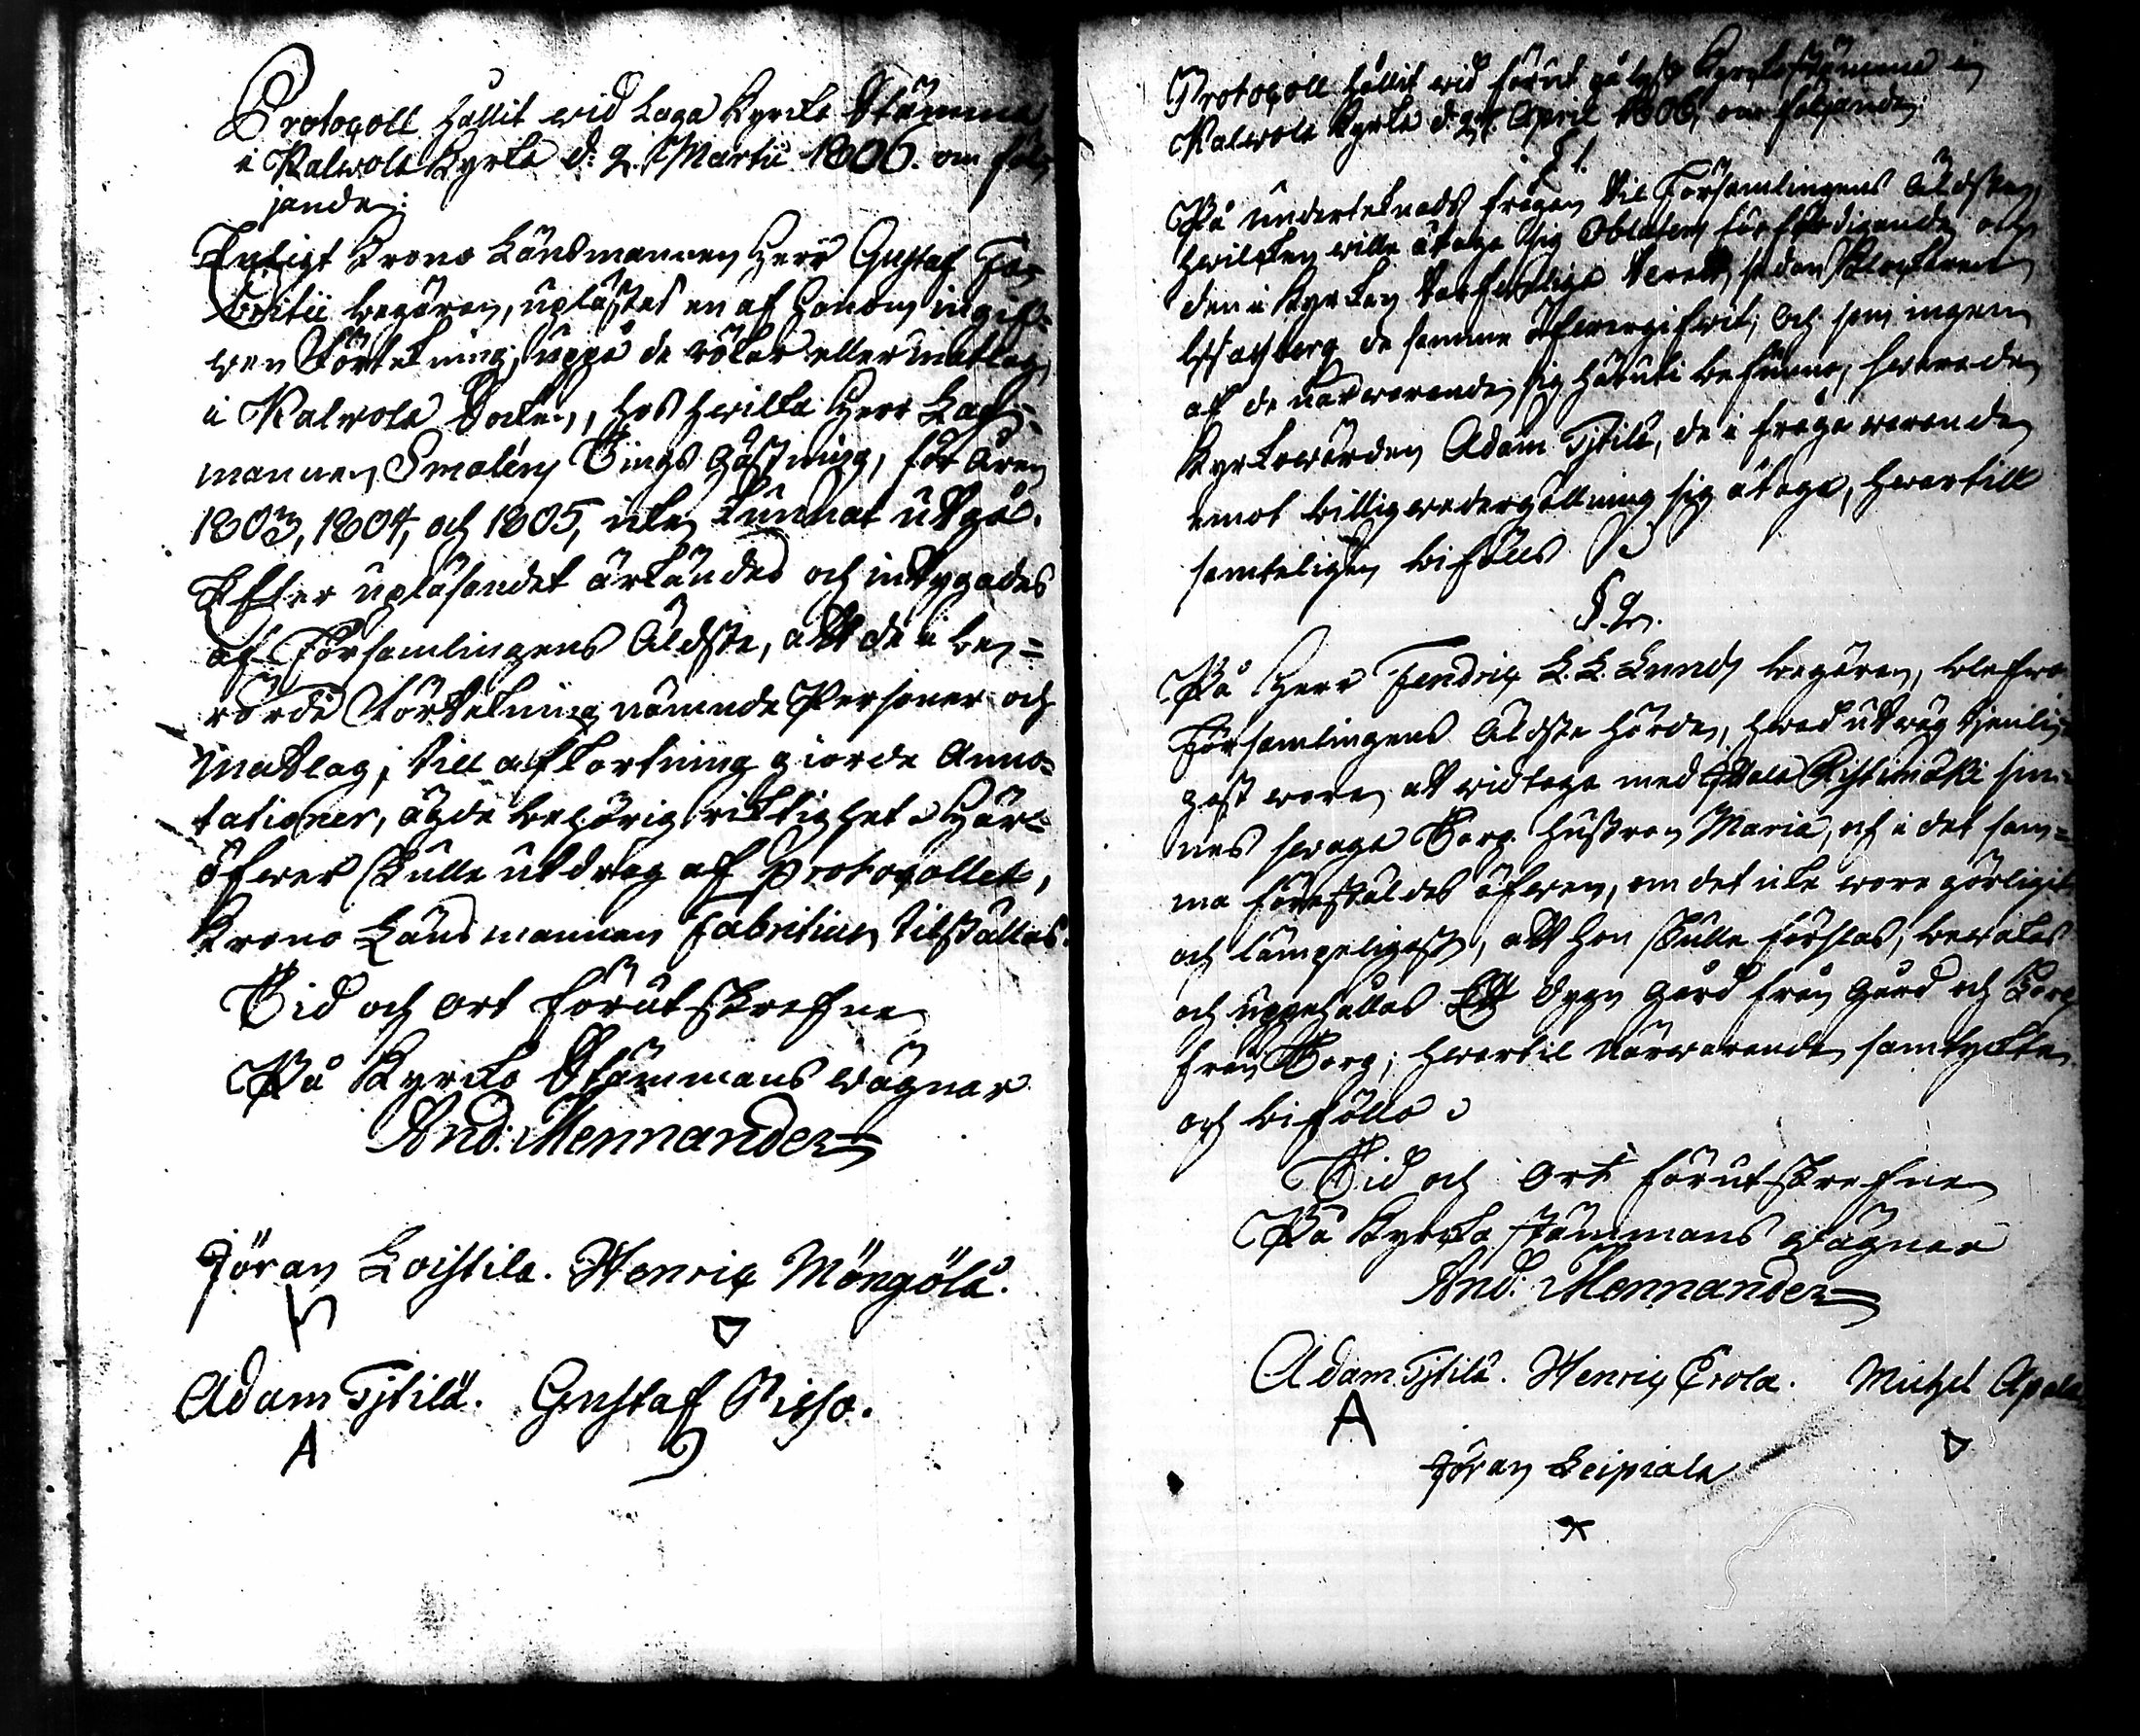 Protocoll hållit wid Laga Kyrcko Stämma
i Kalwola Kyrka d: 2. Martii 1806. om föl-
jande:
Enligt Crono Länsmannen Herr Gustaf Fa-
britii begäran, uplästes en af honom ingif-
wen Förtekning, uppå de rökar eller matlag
i Kalwola Sockn, hos hwilka Herr Lag-
mannen Smaléns Tings Gästning, för åren
1803, 1804, och 1805, icke kunnat utgå.
Efter upläsandet ärkändes och intygades
af Församlingens Äldste, att de i be-
rörde Förtekning nämnde Personer och
Matlag, till afkortning giorde Anno-
tationer, ägde behörig riktighet. Här-
öfwer skulle utdrag af Protocollet,
Krono Länsmannen Fabritius tilställas.
Tid och ort förutskrefne
På Kyrcko Stämmans wägnar
And: Mennander
Jöran Loistila. Henric Möngölä.
Adam Tjtilä. Gustaf Piiho.
A
Protocoll hållit wid förut pålyst Kyrckostämma i
Kalwola Kyrka d. 27. April 1806, om följande:
§ 1.
På underteknads frågan til Församlingens Äldste,
hwilken wille åtaga sig Oblaters förfärdigande och
den i Kyrkan warkeliga sedan Klockaren
de samma öfwergifwit; och som ingen
af de närwarande sig härtil befinna, swarade
Kyrkowärden Adam Tjtilä, de i fråga warande
emot billig wedergällning sig åtaga, hwartill
samteligen biföllo.
§. 2.
På Herr Fendric L. L. Lunds begäran, blefwo
Församlingens Äldste hörde, hwad utwäg tjenli-
gast wore att widtaga med Ristimäki sin-
nes swaga Torp. hustron Maria, och i det sam-
ma föreställdes äfwen, om det icke wore görligit
och lämpeligast, att hon skulle förslas, bewakas
och uppehållas Ett dygn Gård från Gård och Torp
från Torp; hwartil närwarande samtyckte
och biföllo.
Tid och Ort förutskrefne
På Kyrcko stämmans wägnar
And: Mennander
Adam Tjtilä. Henric Erola. Michel Apala
A
Jöran Leipiala